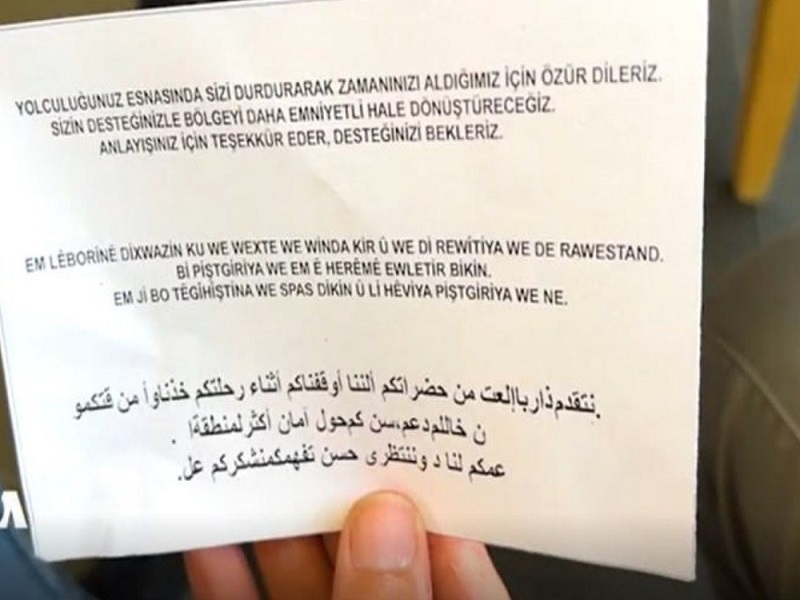 YOLCULUĞUNUZ ESNASINDA SİZİ DURDURARAK ZAMANINIZI ALDIĞIMIZ İÇİN ÖZÜR DİLERİZ.
SİZİN DESTEĞİNİZLE BÖLGEYİ DAHA EMNİYETLİ HALE DÖNÜŞTÜRECEĞİZ.
ANLAYIŞINIZ İÇİN TEŞEKKÜR EDER, DESTEĞİNİZİ BEKLERİZ.
EM LÊBORÎNÊ DIXWAZIN KU WE WEXTE WE WINDA KIR Û WE DI REWÎTIYA WE DE RAWESTAND.
BI PIŞTGIRIYA WE EM Ê HERÊMÊ EWLETIR BIKIN.
EM JI BO TÊGÎHIŞTINA WE SPAS DIKIN Û LI HÊVIYA PIŞTGIRIYA WE NE.
.نتقدم ذارباإلعت من حضراتكم ألننا أوقفناكم أثناء رحلتكم خذناوأ من قتكمو
ن خاللدعم،سن كمحول أمان أكثرلمنطقةا .
عمكم لنا د وننتظرى حسن تفهمكمنشكركم عل.